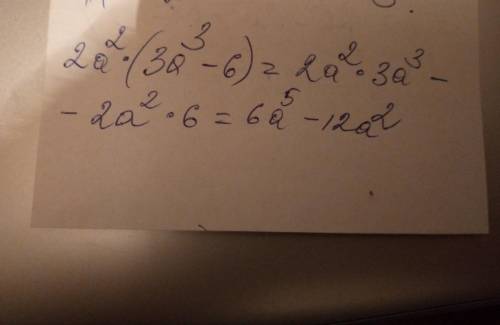 2a²·(3a³-6)=2a²·3a³-
-2a²·6=6a⁵-12a²